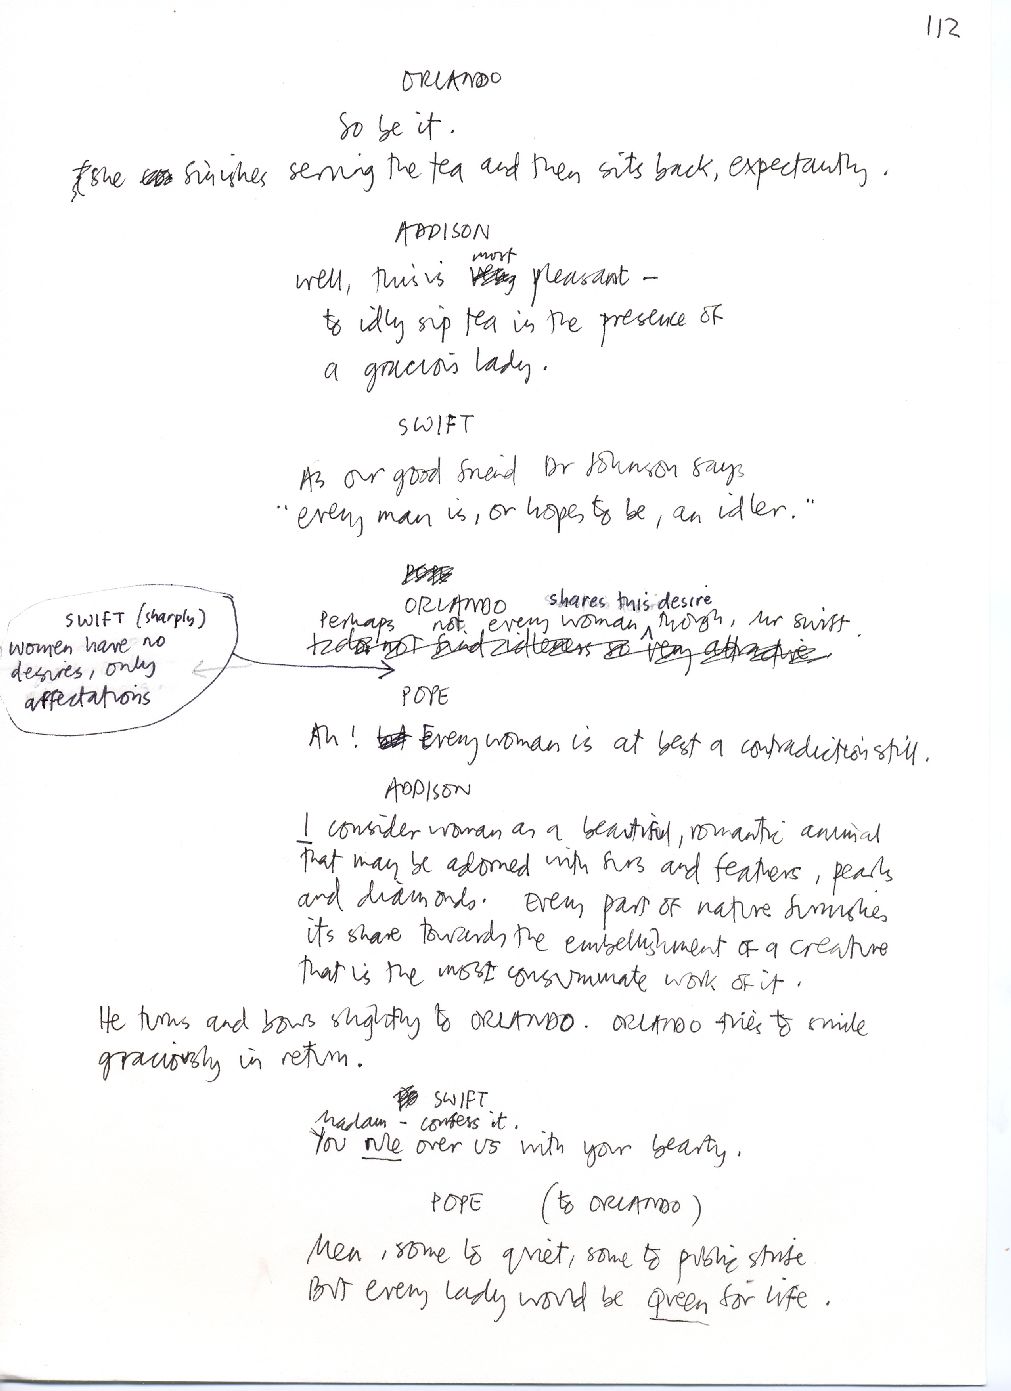 112
ORLANDO
So be it.
She finishes serving the tea and then sits back, expectantly.
ADDISON
most
Well, this is very pleasant –
to idly sip tea in the presence of
a gracious lady.
SWIFT
As our good friend Dr Johnson says
"every man is, or hopes to be, an idler."
POPE
ORLANDO
shares this desire
Perhaps not every woman though, Mr Swift.
I do not find idleness so very attractive
SWIFT (sharply)
women have no
desires, only
affectations
POPE
Ah! but Every woman is at best a contradiction still.
ADDISON
I consider woman as a beautiful, romantic animal
that may be adorned with furs and feathers, pearls
and diamonds. Every part of nature furnishes
its share towards the embellishment of a creature
that is the most consummate work of it.
He turns and bows slightly to ORLANDO. ORLANDO tries to smile
graciously in return.
SWIFT
Madam – confess it.
You rule over us with your beauty.
POPE (to ORLANDO)
Men, some to quiet, some to public strife
But every lady would be queen for life.